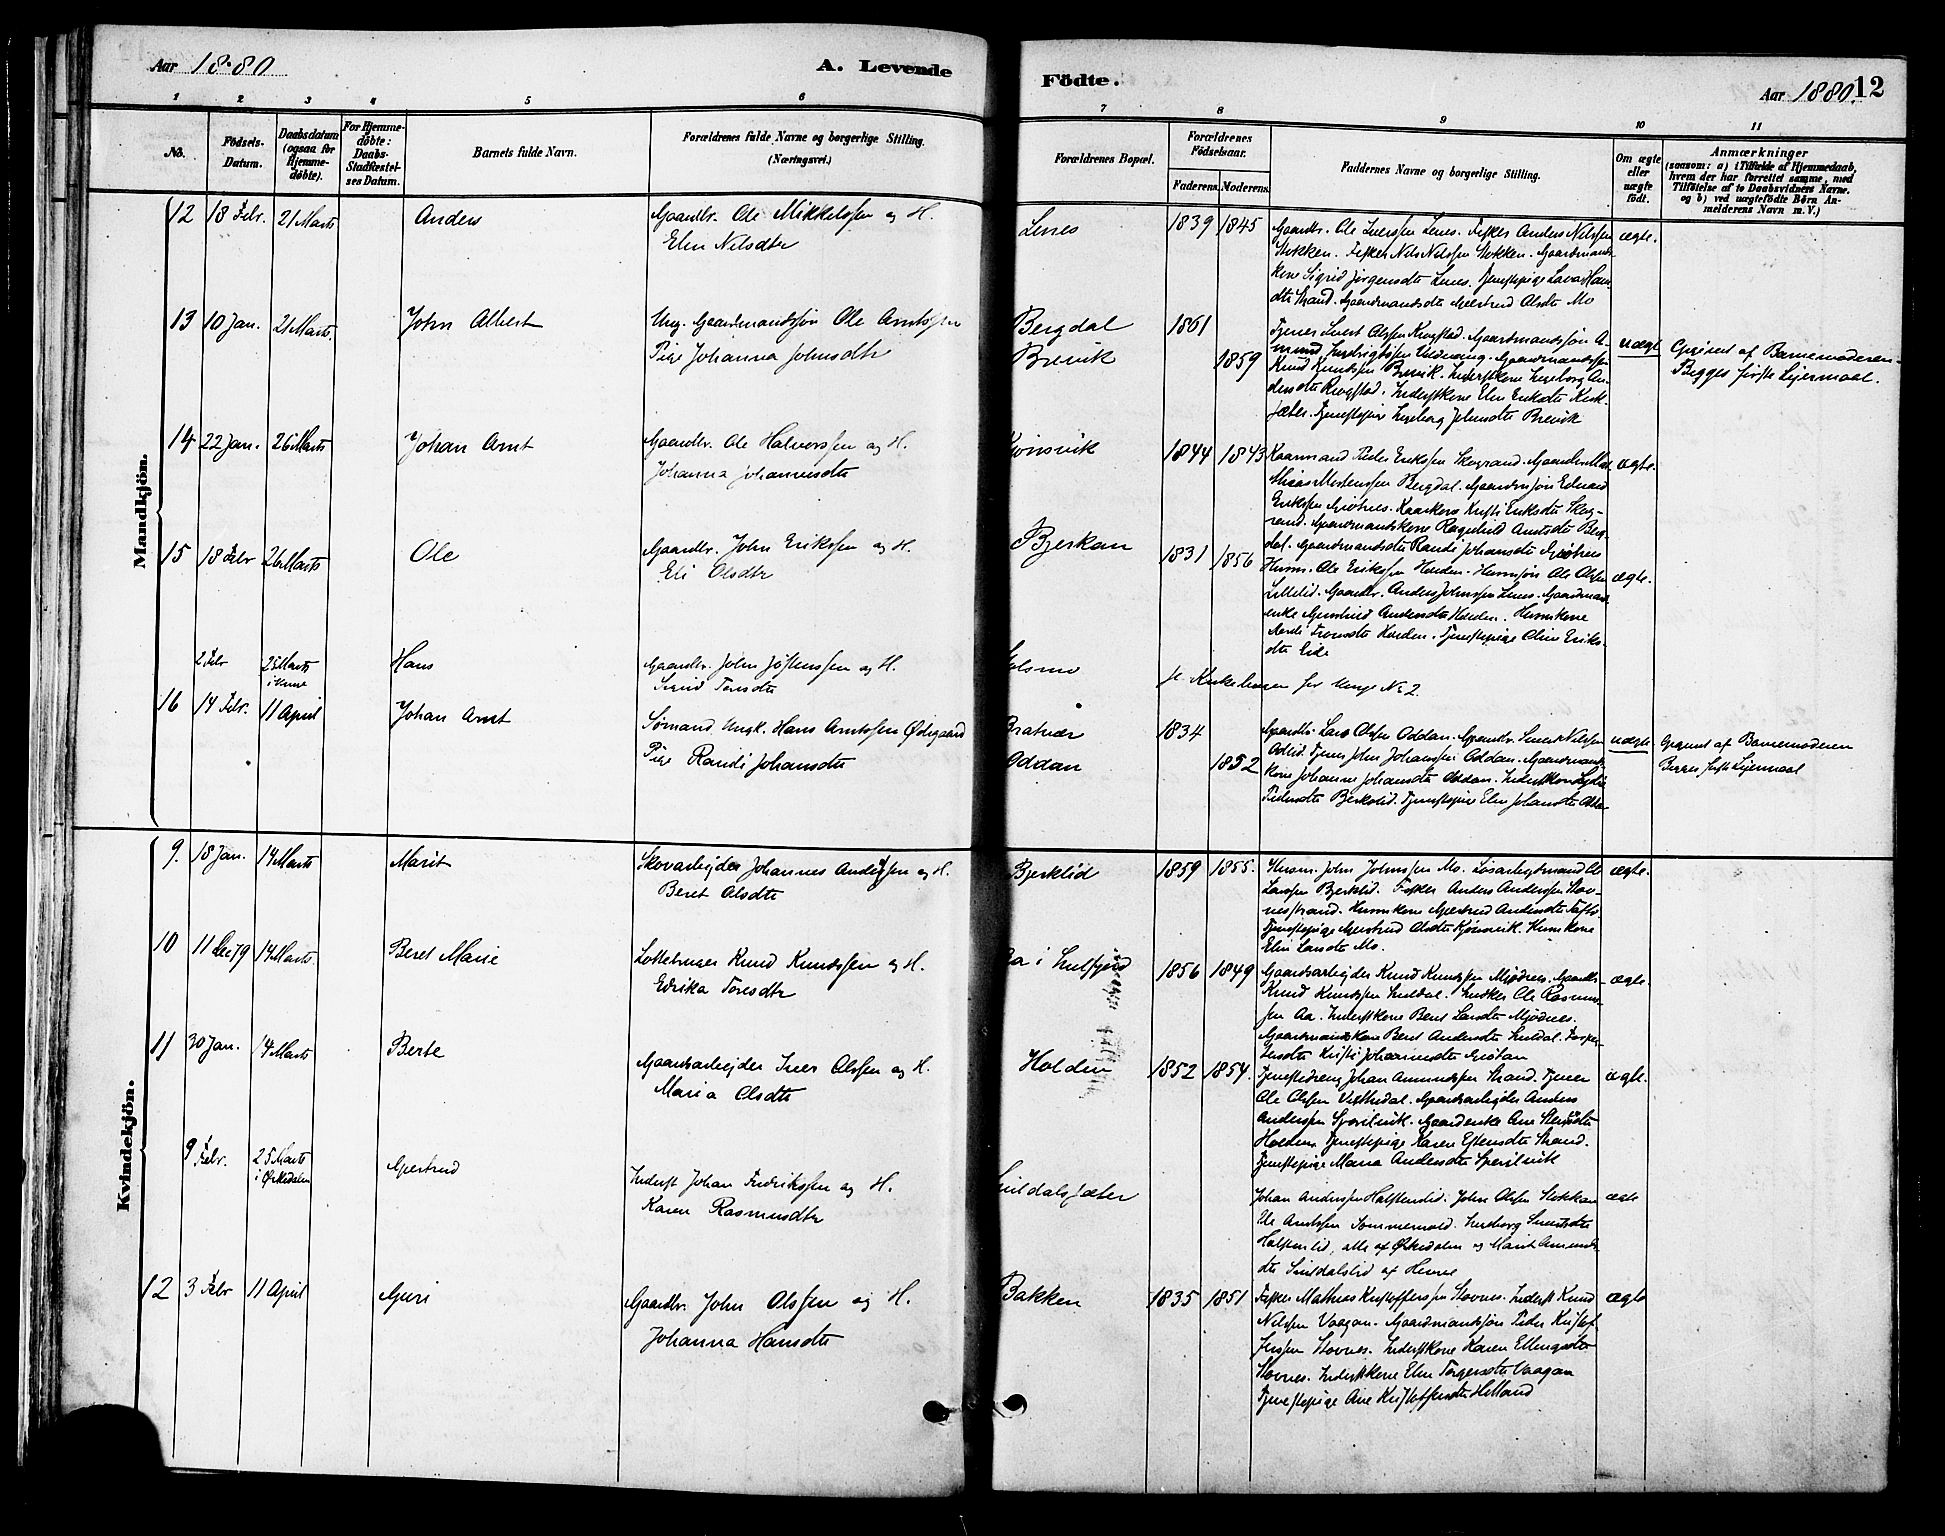 Aar 1880
A. Levende
Födte.
Aar 1880. 12
1 2 3 4 5 6 7 8 9 10 11
No.
Födsels-Datum.
Daabsdatum (ogsaa for Hjemme-døbte).
For Hjemme-døbte: Daabs-Stadfæstel-ses Datum.
Barnets fulde Navn.
Forældrenes fulde Navne og borgerlige Stilling. (Næringsvei.)
Forældrenes Bopæl.
Forældrenes Födselsaar.
Faderens. Moderens.
Faddernes Navne og borgerlige Stilling.
Om ægte eller uægte födt.
Anmærkninger
(saasom: a) i Tilfælde af Hjemmedaab,
hvem der har forrettet samme, med
Tilföielse af to Daabsvidners Navne.
og b) ved uægtefödte Börn An-
melderens Navn m. V.)
Mandkjön.
12 18 Febr. 21 Marts Anders Gaardbr. Ole Mikkelssen og H.
Elen Nilsdtr
Lenes 1839 1845 Gaardbr. Ole Iverssen Lenes. Fisker Anders Nilssen ægte.
Stokken. Fisker Nils Nilssen Stokken. Gaardmands-
kone Sigrid Jørgensdtr Lenes. Tjenestepige
dtr Strand. Gaardmandsdtr Gjertrud Olsdtr Mo
13 10 Jan. 21 Marts. John Albert Ung. Gaardmandssøn Ole Arntssen
Pige Johanna Johnsdtr
Bergdal 1861
Brevik 1859
Tjener Sivert Olssen Krogstad. Gaardmandssøn A-
mund
Knud Knudssen Brevik. Inderstkone Ingeborg An-
dersdtr Krogstad. Inderstkone Elen Eriksdtr Kirk-
sæter. Tjenestepige Ingeborg Johnsdtr Brevik
uægte
Opgivet af Barnemoderen
Begges første Leiermaal.
14 22 Jan. 26 Marts Johan Arnt Gaardbr. Ole Halvorssen og H.
Johanna Johannesdtr
Kjønsvik 1844 1843 Kaarmand Peder Erikssen Skogrand. Gaardbr. Ma- ægte.
thias Mortenssen Bergdal. Gaardmsøn Edvard
Erikssen Kaarkone Eriksdtr Skog-
rand. Gaardmandskone Ragnhild Arntsdtr Berg-
dal. Gaardmandsdtr Randi Johansdtr
15 18 Febr 26 Marts Ole Gaardbr. John Erikssen og H.
Eli Olsdtr
Bjerkan 1831 1856 Husm. Ole Erikssen Holden. Husmsøn Ole Olssen ægte.
Lillelid. Gaardbr. Anders Johnssen Lenes. Gaardman-
enke Andersdtr Holden. Husmkone
Holden. Tjenestepige Oline Eriks-
dtr Eide
2 Febr 25 Marts i Hans Gaardbr. John Jøstenssen og H.
Sigrid Toresdtr
Kirkebogen for No 2.
16 14 Febr. 11 April Johan Arnt Sømand Ungk. Hans Arntssen Ødegaard
Pige Randi Johansdtr
Bratvær 1834
Oddan 1852
Gaardbr. Lars Olssen Oddan. Gaardbr. Sivert Nilssen
Aelid. Tjener John Johanssen Oddan. Gaardmands-
kone Johanne Johansdtr Oddan. Inderstkone
Pedersdtr Berkelid. Tjenestepige Elen Johansdtr
uægte
Opgivet af Barnemoderen
Begges første Leiermaal
Kvindekjön.
9. 18 Jan. 14 Marts Marit Skovarbejder Johannes Anderssen og H.
Beret Olsdtr
Bjerklid 1859 1855. Husm. John Johnssen Mo. Løsarbejdsmand Ole ægte.
Larssen Bjerklid. Fisker Anders Anderssen Stov-
nesstrand. Husmkone Gjertrud Andersdtr
Tjenestepige Gjertrud Olsdtr Kjønsvik. Husmkone
Elen Larsdtr Mo.
10 11 Dec 79 14 Marts. Beret Marie Knud Knudssen og H.
Edrika Toresdtr
Aa i Snilfjord 1856 1849 Gaardsarbejder Knud Knudssen Mjødnes. Gaardbr. ægte.
Knud Knudssen Snildal. Ole Rasmus-
sen Aa. Inderstkone Beret Larsdtr Mjødnes.
Gaardmandskone Beret Andersdtr Snildal.
Johannesdtr
11 30 Jan. 14 Marts Berte Gaardsarbejder Iver Olssen og H.
Maria Olsdtr
Holden 1852 1854. Tjenestedreng Johan Amundssen Strand. Tjener ægte.
Ole Olssen Gaardsarbejder Anders
Anderssen Gaardenke Ane
Holden. Tjenestepige Karen Estensdtr Strand.
Tjenestepige Maria Andersdtr
9 Febr. 25 Marts i Ørkedalen Gjertrud Inderst Johan Fredrikssen og H.
Karen Rasmusdtr
Snildalssæter Johan Anderssen Halstenlid. John Olssen Stokkan ægte
Ole Arntssen Sommervold. Ingeborg Sivertsdtr
Halstenlid, alle af Ørkedalen og Marit Amunds-
dtr Snildalslid af Hevne
12 3 Febr 11 April Guri Gaardbr. John Olssen og H.
Johanna Hansdtr
Bakken 1835 1851 Fisker Mathias Kristofferssen Stovnes. Inderst Knud ægte
Nilssen Vaagan. Gaardmandssøn Peder Kristof-
ferssen Stovnes. Inderstkone Karen Ellingsdtr
Stovnes. Inderstkone Elen Torgersdtr Vaagan
Tjenestepige Ane Kristoffersdtr Helland